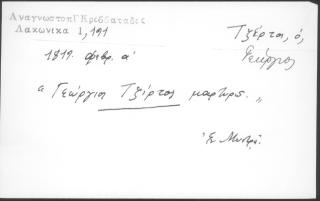 ΑναγνωστοπΓΚρεββαταδες
Λακωνικα 1,191
Τζέρτος, ὁ,
Γεώργιος
1819. φεβρ. α'
"Γεώργιος Τζίρτος μαρτυρῶ."
Ἐν Μυστρᾷ.